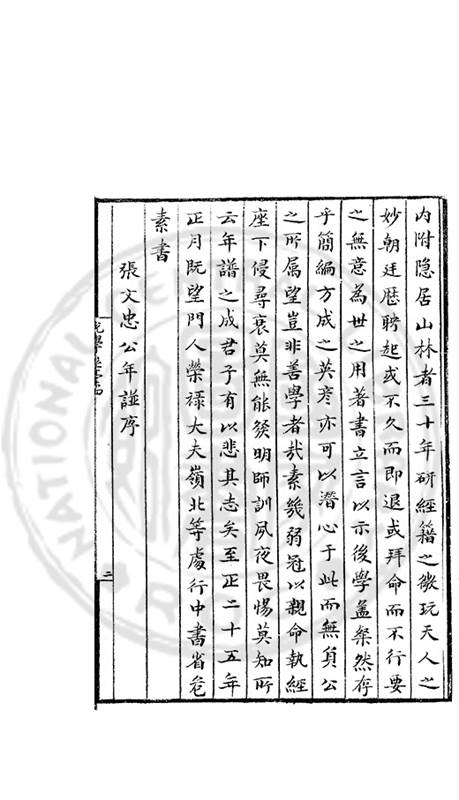 内附隐居山林者三十年研經籍之微玩天人之
妙朝廷歴聘起或不久而即退或拜命而不行要
之無意為世之用著書立言以示後學盖粲然存
乎簡編方成之英彦亦可以潜心于此而無負公
之所属望豈非善學者㢤素㡬弱冠以親命執經
座下侵尋衰莫無能發明師訓夙夜畏惕莫知所
云年譜之成君子有以悲其志矣至正二十五年
正月既望門人榮祿大夫嶺北等處行中書省危
素書
張文忠公年譜序
二
NATIONAL